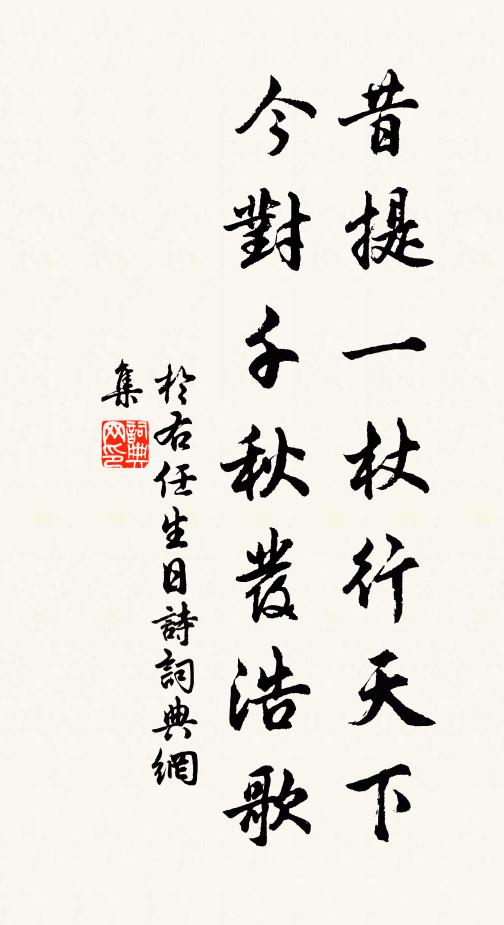 昔提一杖行天下
今對千秋發浩歌
於右任生日詩詞典網
集
詞典网印